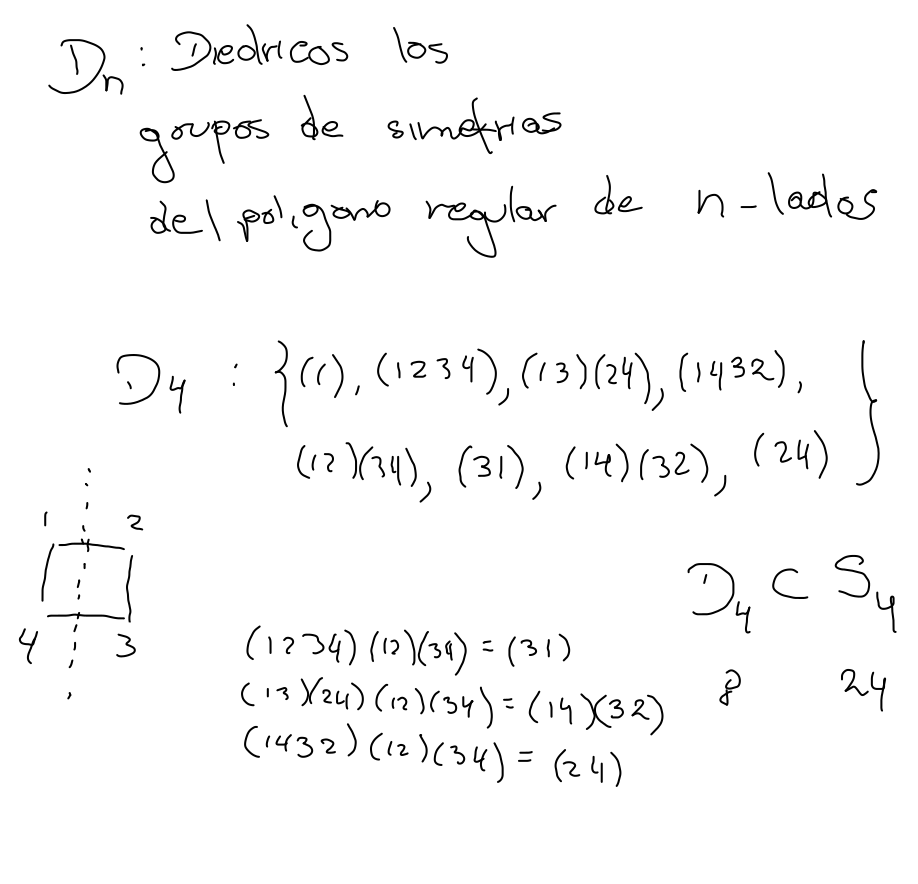 Dn : Diedricos los
grupos de simetrias
del poligono regular de n-lados
D4 : {(1), (1234), (13)(24), (1432),
(12)(34), (31), (14)(32), (24)}
1 2
4 3
D4 ⊂ S4
8 24
(1234)(12)(34) = (31)
(13)(24)(12)(34) = (14)(32)
(1432)(12)(34) = (24)